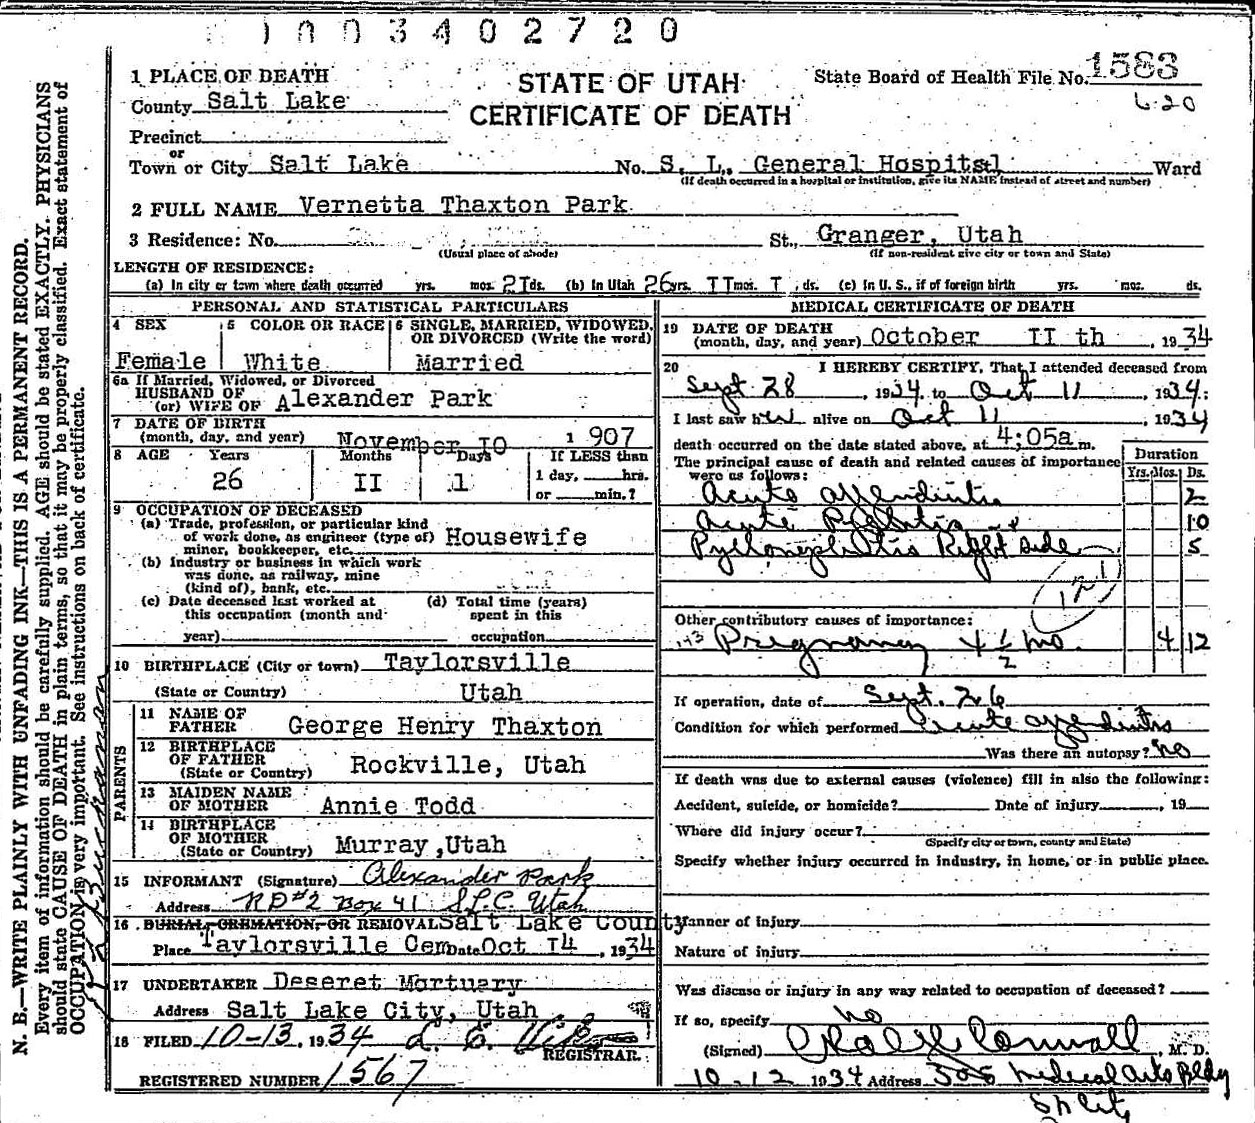 1003402720
1 PLACE OF DEATH
County Salt Lake
STATE OF UTAH
CERTIFICATE OF DEATH
State Board of Health File No. 1583
620
Precinct
or
Town or City Salt Lake No. S. L. General Hospital Ward
(If death occurred in a hospital or institution, give its NAME instead of street and number)
2 FULL NAME Vernetta Thaxton Park
3 Residence: No. St., Granger, Utah
(Usual place of abode) (If non-resident give city or town and State)
LENGTH OF RESIDENCE:
(a) In city or town where death occurred yrs. mos. 2I ds. (b) In Utah 26 yrs. II mos. I ds. (c) In U. S., if of foreign birth yrs. mos. ds.
PERSONAL AND STATISTICAL PARTICULARS
4 SEX 5 COLOR OR RACE 6 SINGLE, MARRIED, WIDOWED, OR DIVORCED (Write the word)
Female White Married
6a If Married, Widowed, or Divorced
HUSBAND OF
(or) WIFE OF Alexander Park
7 DATE OF BIRTH
(month, day, and year) November I0 1907
8 AGE Years Months Days If LESS than
26 II 1 1 day, hrs.
or min.?
9 OCCUPATION OF DECEASED
(a) Trade, profession, or particular kind
of work done, as engineer (type of)
miner, bookkeeper, etc. Housewife
(b) Industry or business in which work
was done, as railway, mine
(kind of), bank, etc.
(c) Date deceased last worked at (d) Total time (years)
this occupation (month and spent in this
year) occupation
10 BIRTHPLACE (City or town) Taylorsville
(State or Country) Utah
PARENTS
11 NAME OF
FATHER George Henry Thaxton
12 BIRTHPLACE
OF FATHER
(State or Country) Rockville, Utah
13 MAIDEN NAME
OF MOTHER Annie Todd
14 BIRTHPLACE
OF MOTHER
(State or Country) Murray ,Utah
15 INFORMANT (Signature) Alexander Park
Address RD#2 Box 41 S.L.C. Utah
16 BURIAL, CREMATION, OR REMOVAL Salt Lake County
Place Taylorsville Cem Date Oct I4 , 1934
17 UNDERTAKER Deseret Mortuary
Address Salt Lake City, Utah
18 FILED 10-13, 1934
REGISTRAR.
REGISTERED NUMBER 1567
MEDICAL CERTIFICATE OF DEATH
19 DATE OF DEATH
(month, day, and year) October II th , 1934
20 I HEREBY CERTIFY, That I attended deceased from
Sept 28 , 1934, to Oct 11 , 1934:
I last saw her alive on Oct 11 , 1934
death occurred on the date stated above, at 4;05a m.
The principal cause of death and related causes of importance
were as follows:
Duration
Yrs. Mos. Ds.
Acute appendicitis 2
Acute 10
Pyelonephritis Right side 5
121
Other contributory causes of importance:
143 Pregnancy 4 1/2 mo. 4 12
If operation, date of Sept. 26
Condition for which performed Acute appendicitis
Was there an autopsy? no
If death was due to external causes (violence) fill in also the following:
Accident, suicide, or homicide? Date of injury , 19
Where did injury occur?
(Specify city or town, county and State)
Specify whether injury occurred in industry, in home, or in public place.
Manner of injury
Nature of injury
Was disease or injury in any way related to occupation of deceased?
If so, specify no
(Signed) , M. D.
10-12 1934 Address 305 Medical Arts Bldg
N. B.—WRITE PLAINLY WITH UNFADING INK—THIS IS A PERMANENT RECORD.
Every item of information should be carefully supplied. AGE should be stated EXACTLY. PHYSICIANS
should state CAUSE OF DEATH in plain terms, so that it may be properly classified. Exact statement of
OCCUPATION is very important. See instructions on back of certificate.